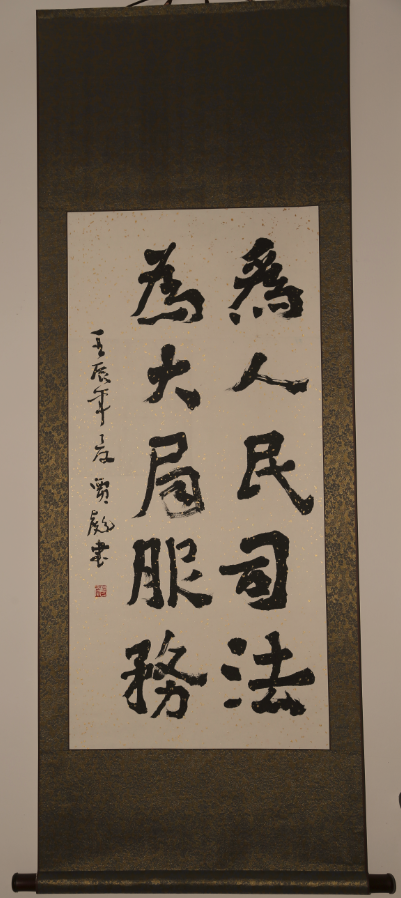 爲人民司法
為大局服務
壬辰年夏賈彪書